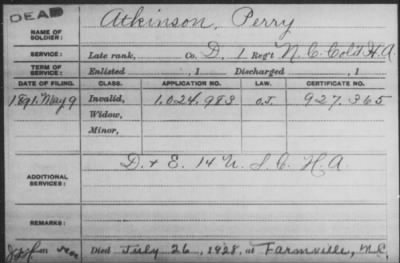 DEAD
NAME OF SOLDIER: Atkinson, Perry
SERVICE: Late rank, Co. D, 1 Reg't N. C. Col'd H. A.
TERM OF SERVICE: Enlisted , 1 Discharged , 1
DATE OF FILING. CLASS. APPLICATION NO. LAW. CERTIFICATE NO.
1891 May 9 Invalid, 1,024,983 O.J. 927,365
Widow,
Minor,
ADDITIONAL SERVICES: D. + E. 14 U. S. C. H. A.
REMARKS:
Died July 26, 1928, at Farmville, N.C.